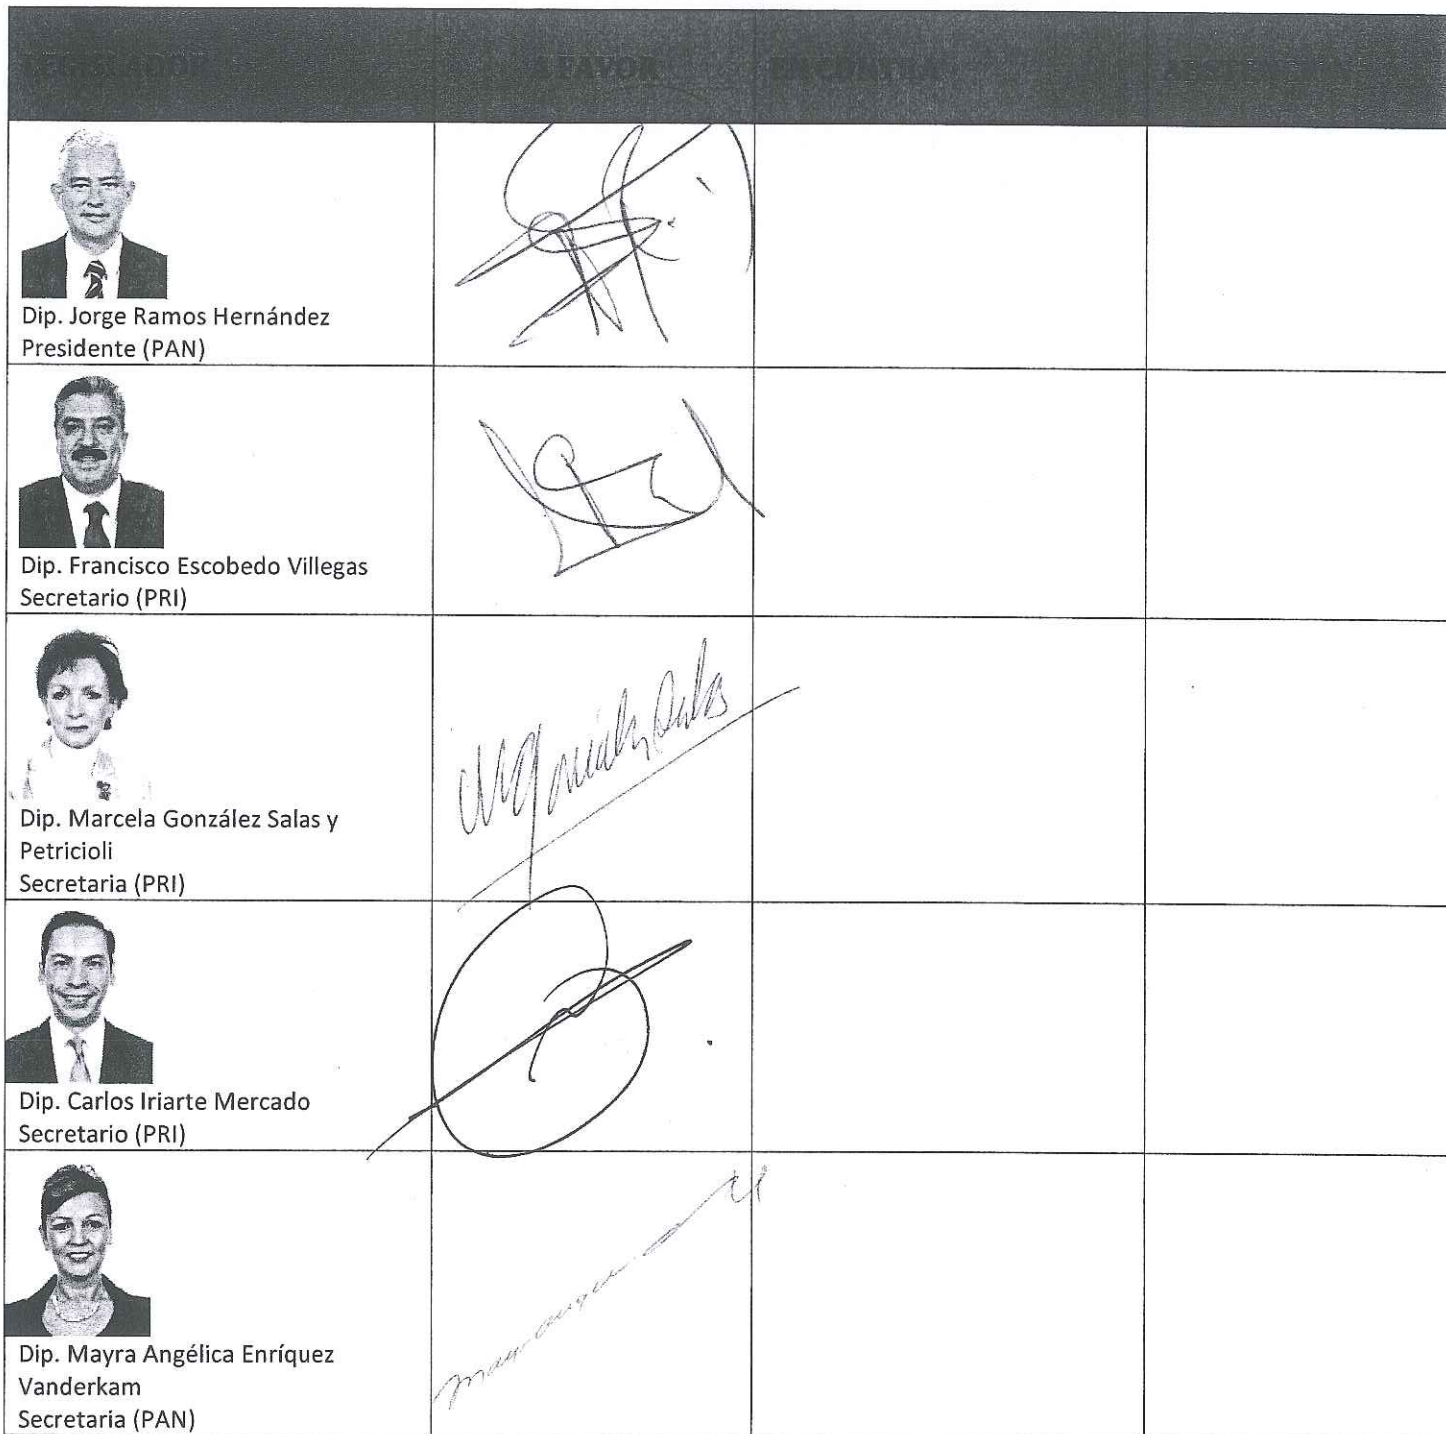 LEGISLADOR A FAVOR EN CONTRA ABSTENCIÓN
Dip. Jorge Ramos Hernández
Presidente (PAN)
Dip. Francisco Escobedo Villegas
Secretario (PRI)
Dip. Marcela González Salas y
Petricioli
Secretaria (PRI)
Dip. Carlos Iriarte Mercado
Secretario (PRI)
Dip. Mayra Angélica Enríquez
Vanderkam
Secretaria (PAN)